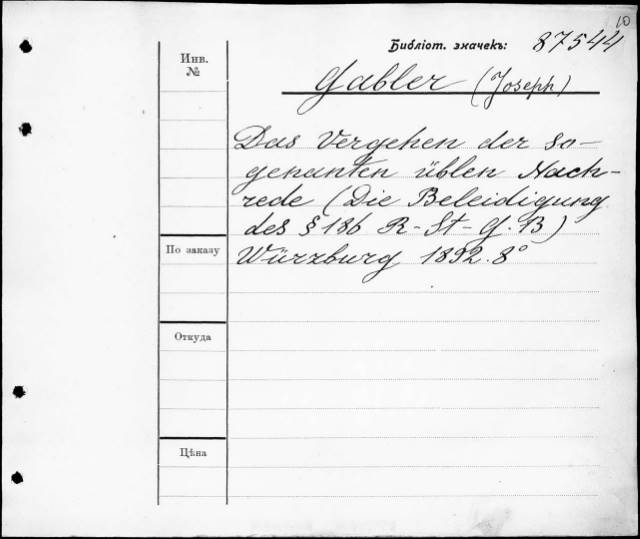 10
Библіот. значекъ: 87544
Инв.
№
Gabler (Joseph)
Das Vergehen der so-
genanten üblen Nach-
rede (Die Beleidigung
des § 186 R-St-G.B)
По заказу
Würzburg 1892. 8°
Откуда
Цѣна